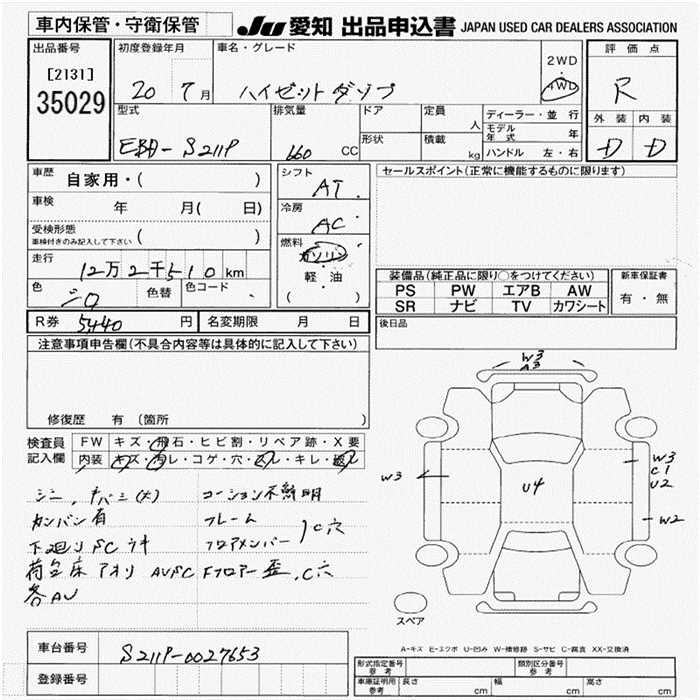 車内保管・守衛保管
JU 愛知 出品申込書 JAPAN USED CAR DEALERS ASSOCIATION
出品番号
[2131]
35029
初度登録年月
20 7月
車名・グレード
ハイゼット ダンプ
2WD
・
4WD
評価点
R
外装 内装
D D
型式
EBD-S211P
排気量
660 CC
ドア
形状
定員
人
積載
kg
ディーラー・並行
モデル年式 年
ハンドル 左・右
車歴
自家用・( )
車検
年 月( 日)
受検形態
車検付きのみ記入して下さい ( )
走行
12万2千510km
色
シロ
色替
色コード
R券 5,440 円
名変期限 月 日
シフト
AT
冷房
AC
燃料
ガソリン
軽・油
( )
セールスポイント(正常に機能するものに限ります)
装備品(純正品に限り○をつけてください)
PS PW エアB AW
SR ナビ TV カワシート
新車保証書
有・無
後日品
注意事項申告欄(不具合内容等は具体的に記入して下さい)
修復歴 有 (箇所 )
検査員記入欄
FW キズ・飛石・ヒビ割・リペア跡・X要
内装 キズ・汚レ・コゲ・穴・スレ・キレ・破レ
コーション不鮮明
カンバン有
フレーム
フロアメンバー
C穴
下廻りSC ウキ
荷台床 アオリ AUSC Fフロアー歪,C穴
各AU
W3
A3
W3
U4
W3
C1
U2
W2
スペア
A-キズ E-エクボ U-凹み W-補修跡 S-サビ C-腐食 XX-交換済
車台番号 S211P-0027653
登録番号
形式指定番号 参考
類別区分番号 参考
車庫証明用 参考
長さ cm 幅 cm 高さ cm